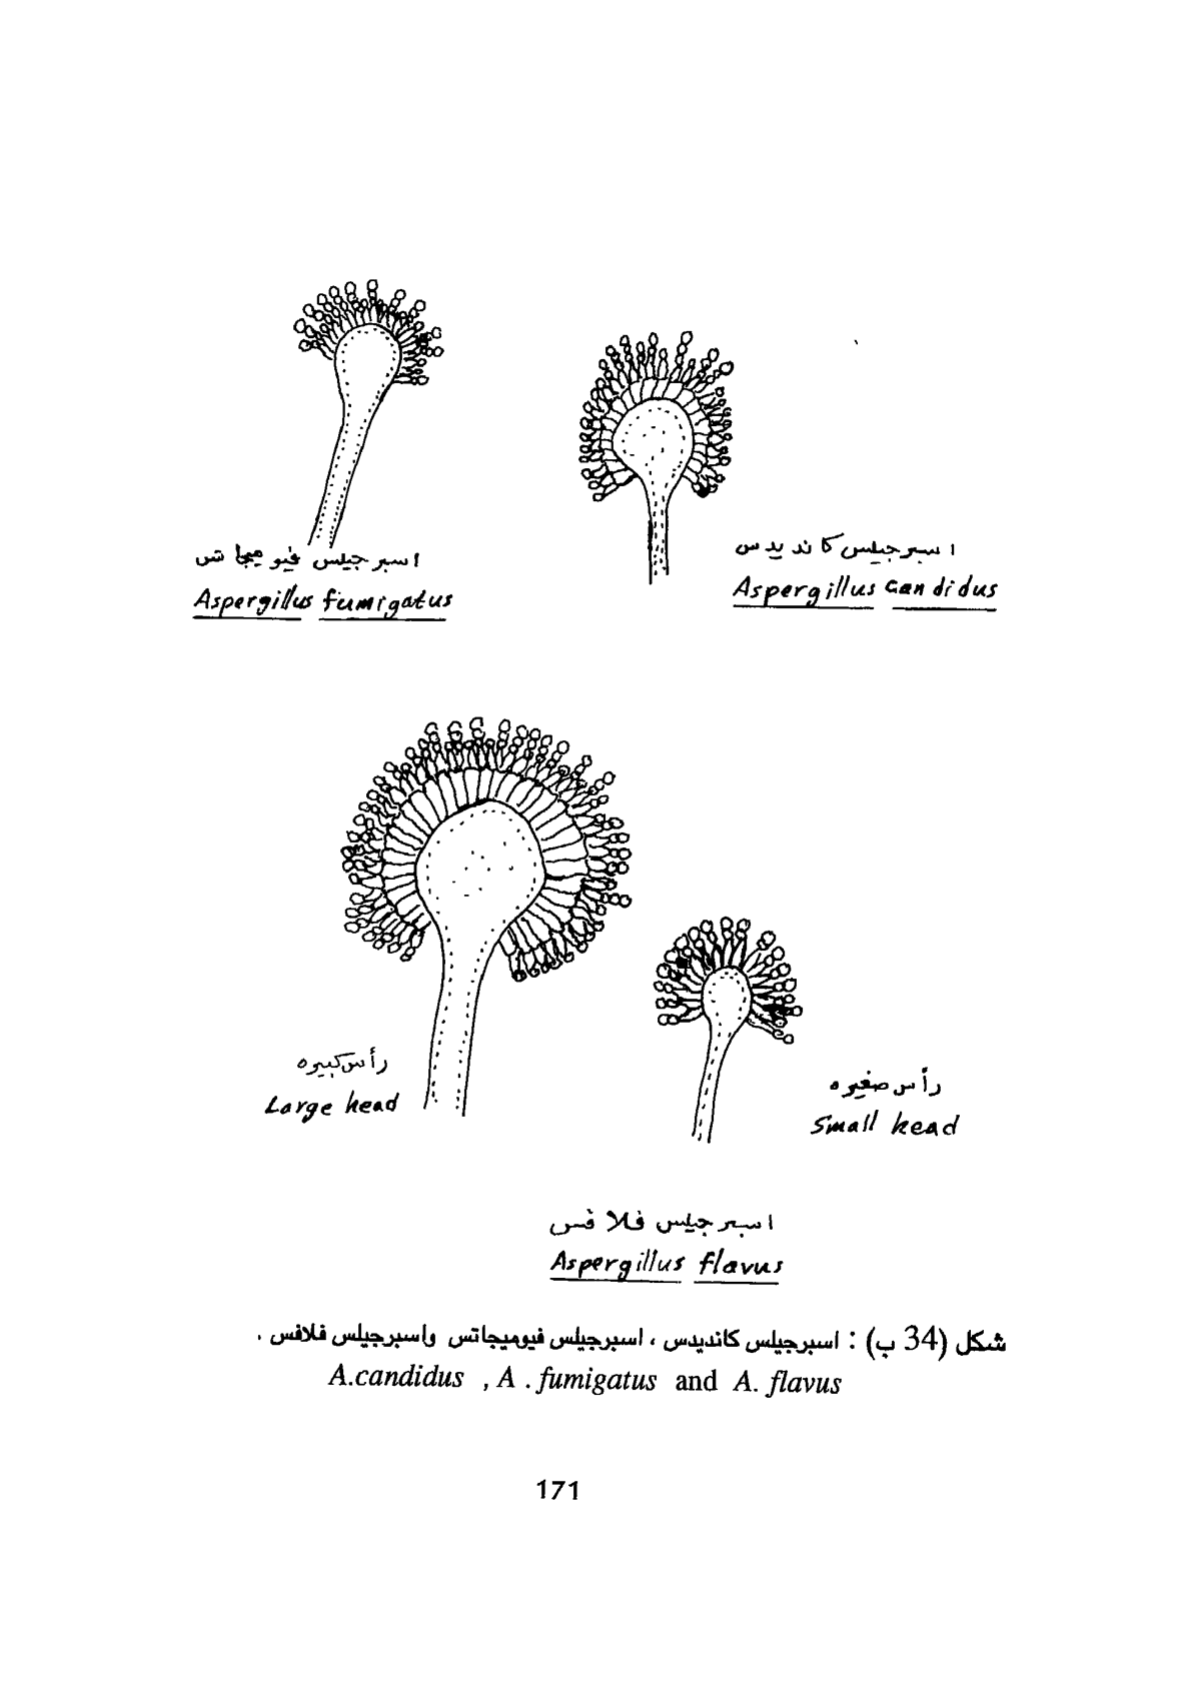 اسبرجيلس فيوميجاتس
Aspergillus fumigatus
اسبرجيلس كانديدس
Aspergillus candidus
رأس كبيره
Large head
رأس صغيره
Small head
اسبرجيلس فلافس
Aspergillus flavus
شكل (34 ب) : اسبرجيلس كانديدس ، اسبرجيلس فيوميجاتس واسبرجيلس فلافس .
A.candidus , A . fumigatus and A. flavus
171